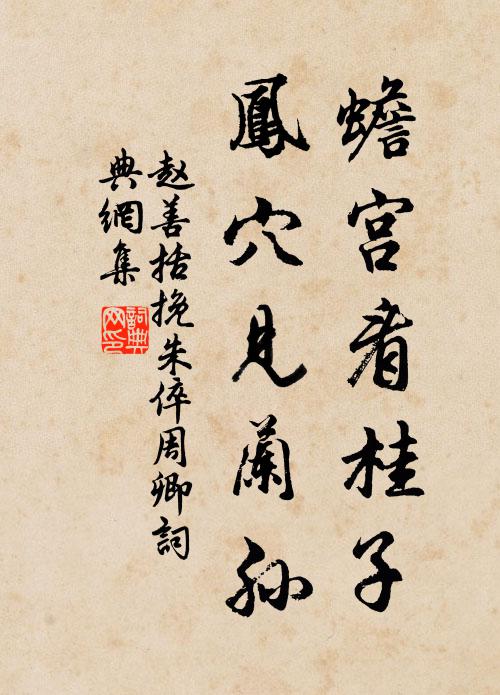 蟾宫看桂子
鳳穴見蘭孫
赵善括挽朱倅周卿詞
典網集
詞典网印